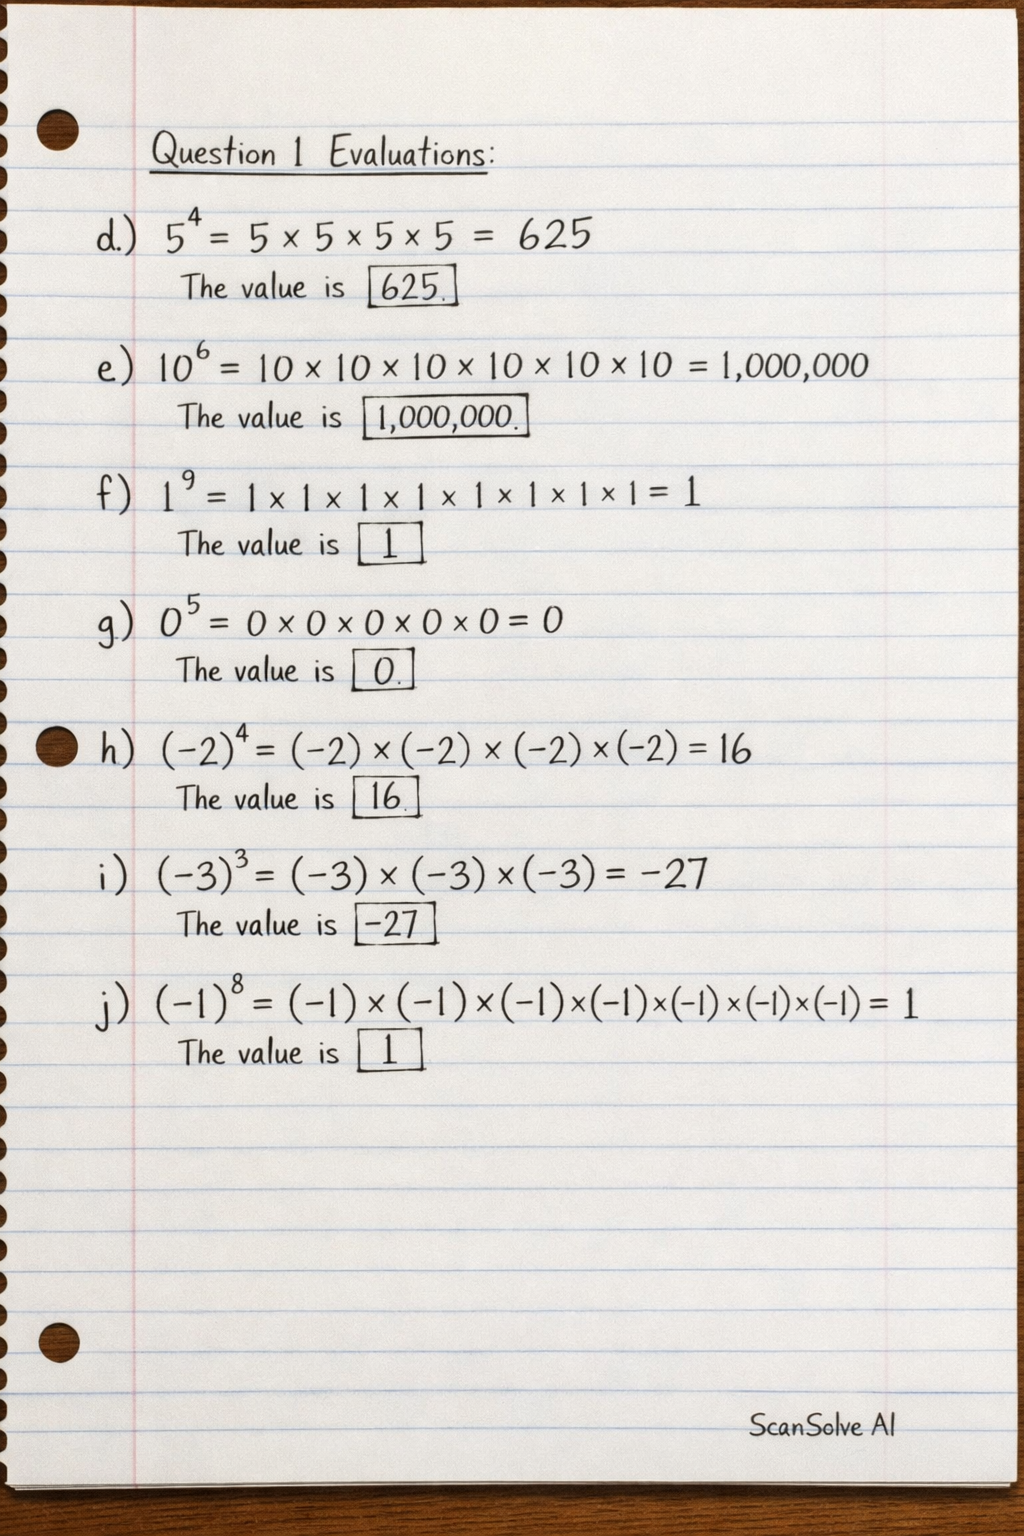 Question 1 Evaluations:
d.) 5⁴ = 5 × 5 × 5 × 5 = 625
The value is 625.
e) 10⁶ = 10 × 10 × 10 × 10 × 10 × 10 = 1,000,000
The value is 1,000,000.
f) 1⁹ = 1 × 1 × 1 × 1 × 1 × 1 × 1 × 1 = 1
The value is 1
g) 0⁵ = 0 × 0 × 0 × 0 × 0 = 0
The value is 0.
h) (-2)⁴ = (-2) × (-2) × (-2) × (-2) = 16
The value is 16.
i) (-3)³ = (-3) × (-3) × (-3) = -27
The value is -27
j) (-1)⁸ = (-1) × (-1) × (-1) × (-1) × (-1) × (-1) × (-1) = 1
The value is 1
ScanSolve AI